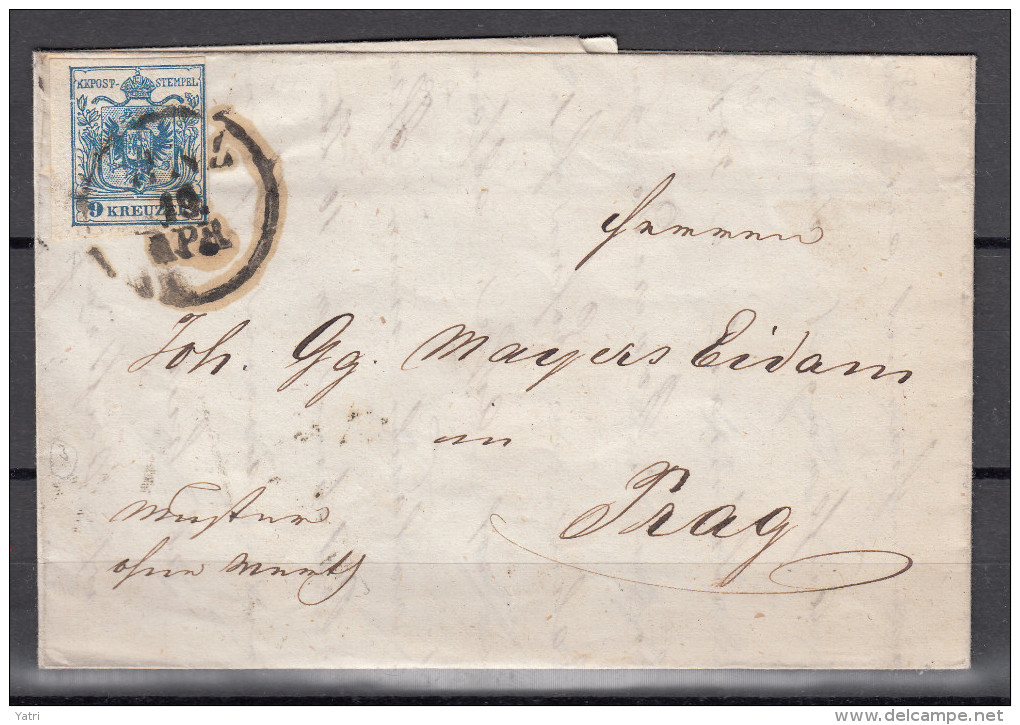 KKPOST-STEMPEL
9 KREUZER.
18.
APR
Herren
Joh. Gg. Mayers Eidam
in
Prag
Muster
ohne Werth
Yatri
delcampe.net